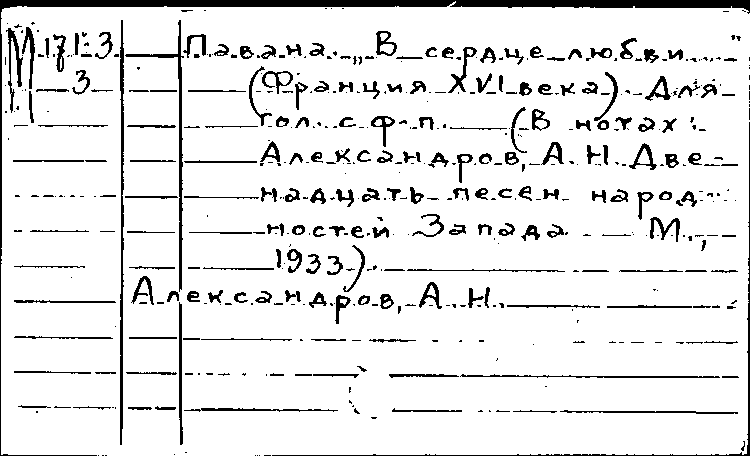 М 171-3 Павана. „В сердце любви...."
3 (Франция XVI века). Для
гол. с ф-п. (В нотах:
Александров, А. Н. Две-
надцать песен народ-
ностей Запада М.,
1933).
Александров, А. Н.